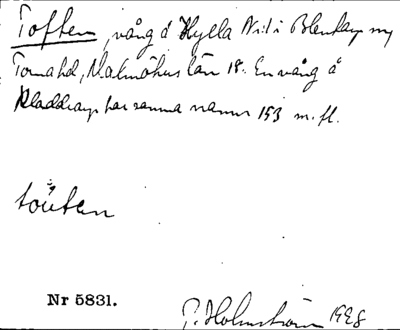 Toften, vång å Hylla N:1 i Blentarp
Torna hd, Malmöhus län 18. En vång å
har samma namn 153 m. fl.
toůten
Nr 5831.
P. Holmström 1928